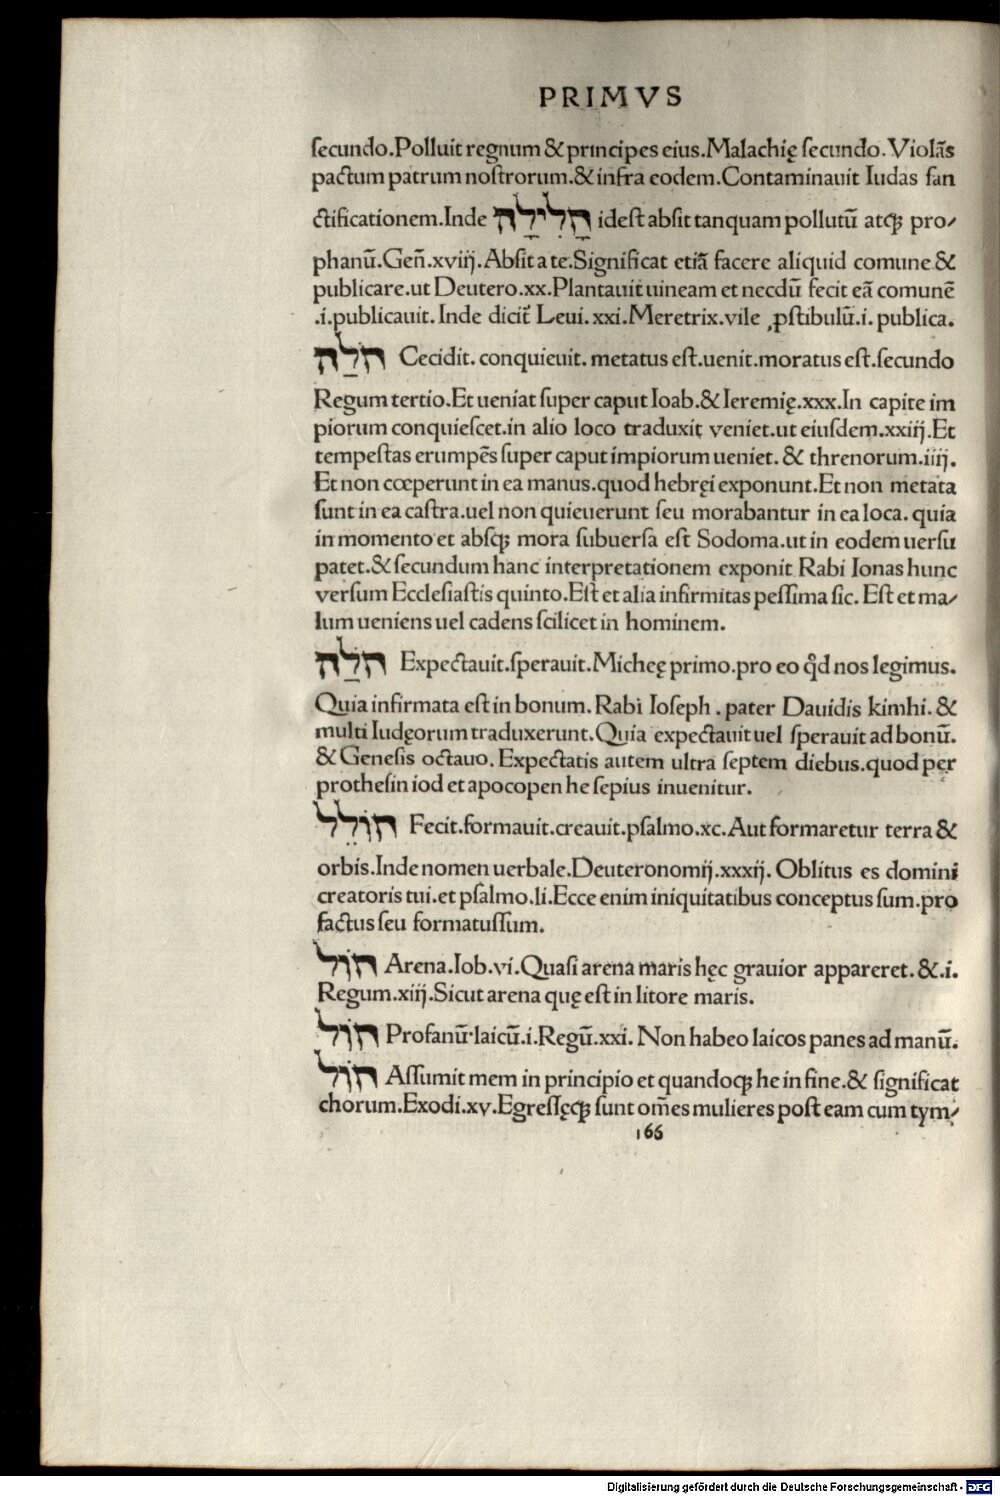 PRIMVS
secundo.Polluit regnum & principes eius.Malachię secundo.Violãs
pactum patrum nostrorum.& infra eodem.Contaminauit Iudas san
ctificationem.Inde חָלִילָה idest absit tanquam pollutũ atqꝫ pro⸗
phanũ.Geñ.xviij.Absit a te.Significat etiã facere aliquid comune &
publicare.ut Deutero.xx.Plantauit uineam et necdũ fecit eã comunẽ
.i.publicauit. Inde dicit̃ Leui.xxi.Meretrix.vile ꝓstibulũ.i.publica.
חלַה Cecidit.conquieuit.metatus est.uenit.moratus est.secundo
Regum tertio.Et ueniat super caput Ioab.& Ieremię.xxx.In capite im
piorum conquiescet.in alio loco traduxit veniet.ut eiusdem.xxiij.Et
tempestas erumpẽs super caput impiorum ueniet.& threnorum.iiij.
Et non cœperunt in ea manus.quod hebręi exponunt.Et non metata
sunt in ea castra.uel non quieuerunt seu morabantur in ea loca.quia
in momento et absqꝫ mora subuersa est Sodoma.ut in eodem uersu
patet.& secundum hanc interpretationem exponit Rabi Ionas hunc
versum Ecclesiastis quinto.Est et alia infirmitas pessima sic. Est et ma⸗
lum ueniens uel cadens scilicet in hominem.
חלַה Expectauit.sperauit.Micheę primo.pro eo qđ nos legimus.
Quia infirmata est in bonum.Rabi Ioseph.pater Dauidis kimhi.&
multi Iudęorum traduxerunt.Quia expectauit uel sperauit ad bonũ.
& Genesis octauo.Expectatis autem ultra septem diebus.quod per
prothesin iod et apocopen he sepius inuenitur.
חוֹלֵל Fecit.formauit.creauit.psalmo.xc.Aut formaretur terra &
orbis.Inde nomen uerbale.Deuteronomij.xxxij. Oblitus es domini
creatoris tui.et psalmo.li.Ecce enim iniquitatibus conceptus sum.pro
factus seu formatus sum.
חוֹל Arena.Iob.vi.Quasi arena maris hęc grauior appareret.&.i.
Regum.xiij.Sicut arena quę est in litore maris.
חוֹל Profanũ.laicũ.i.Regũ.xxi. Non habeo laicos panes ad manũ.
חוֹל Assumit mem in principio et quandoqꝫ he in fine.& significat
chorum.Exodi.xv.Egressęqꝫ sunt om̃es mulieres post eam cum tym⸗
166
Digitalisierung gefördert durch die Deutsche Forschungsgemeinschaft - DFG